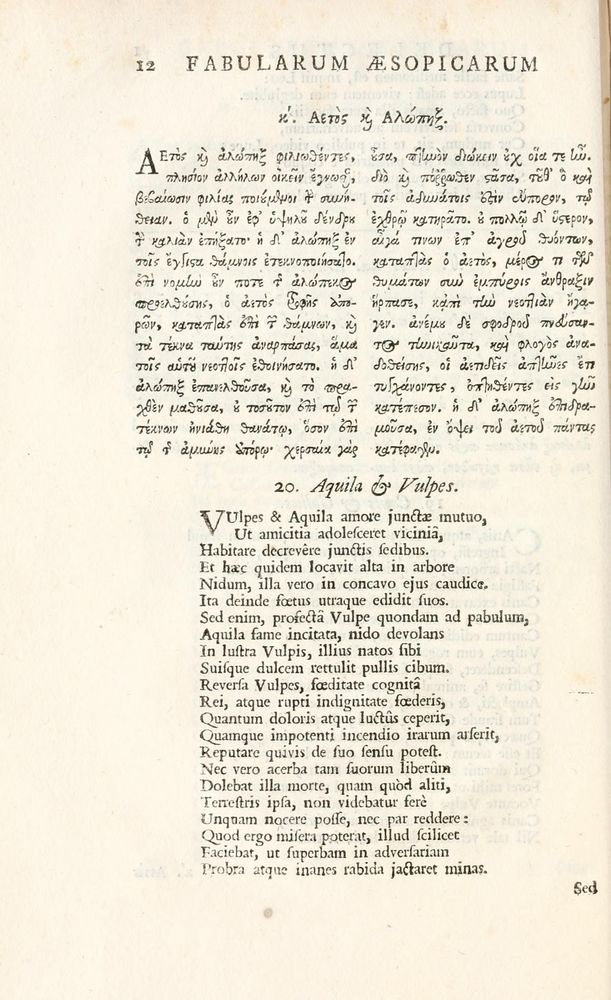 12 FABULARUM ÆSOPICARUM
κ΄. Αετὸς ϗ̀ Αλώπηξ.
ΑΕτὸς ϗ̀ ἀλώπηξ φιλιωθέντες,
πλησίον ἀλλήλων οἰκεῖν ἔγνωσαν,
βεβαίωσιν φιλίας ποιούμενοι τὴν συνή-
θειαν. ὁ μὲν οὖν ἐφ' ὑψηλοῦ δένδρου
τὴν καλιὰν ἐπήξατο· ἡ δ' ἀλώπηξ ἐν
τοῖς ἔγγιστα θάμνοις ἐτεκνοποιήσατο.
ἐπὶ νομὴν οὖν ποτε τῆς ἀλώπεκος
προελθούσης, ὁ ἀετὸς τροφῆς ἀπο-
ρῶν, καταπτὰς ἐπὶ τῶν θάμνων, ϗ̀
τὰ τέκνα ταύτης ἀναρπάσας, ἅμα
τοῖς αὑτοῦ νεοττοῖς ἐθοινήσατο. ἡ δ'
ἀλώπηξ ἐπανελθοῦσα, ϗ̀ τὸ πρα-
χθὲν μαθοῦσα, οὐ τοσοῦτον ἐπὶ τῷ τῶν
τέκνων ἠνιάθη θανάτῳ, ὅσον ἐπὶ
τῷ τῆς ἀμύνης ἀπόρῳ· χερσαία γὰρ
οὖσα, πτηνὸν διώκειν οὐχ οἵα τε ἦν.
διὸ ϗ̀ πόῤῥωθεν στᾶσα, τοῦθ' ὃ καὶ
τοῖς ἀδυνάτοις ἐστὶν εὔπορον, τῷ
ἐχθρῷ κατηρᾶτο. οὐ πολλῷ δ' ὕστερον,
αἶγά τινων ἐπ' ἀγροῦ θυόντων,
καταπτὰς ὁ ἀετὸς, μέρος τι τῶν
θυμάτων σὺν ἐμπύροις ἄνθραξιν
ἥρπασε, κἀπὶ τὴν νεοτιὰν ἤγα-
γεν. ἀνέμου δὲ σφοδροῦ πνεύσαν-
τος τηνικαῦτα, καὶ φλογὸς ἀνα-
δοθείσης, οἱ ἀετιδεῖς ἀπτῆνες ἔτι
τυγχάνοντες, ὀπτηθέντες εἰς γῆν
κατέπεσον. ἡ δ' ἀλώπηξ ἐπιδρα-
μοῦσα, ἐν ὄψει τοῦ ἀετοῦ πάντας
κατέφαγεν.
20. Aquila & Vulpes.
VUlpes & Aquila amore junctæ mutuo,
Ut amicitia adolesceret viciniâ,
Habitare decrevêre junctis sedibus.
Et hæc quidem locavit alta in arbore
Nidum, illa vero in concavo ejus caudice.
Ita deinde fœtus utraque edidit suos.
Sed enim, profectâ Vulpe quondam ad pabulum,
Aquila fame incitata, nido devolans
In lustra Vulpis, illius natos sibi
Suisque dulcem rettulit pullis cibum.
Reversa Vulpes, fœditate cognitâ
Rei, atque rupti indignitate fœderis,
Quantum doloris atque luctûs ceperit,
Quamque impotenti incendio irarum arserit,
Reputare quivis de suo sensu potest.
Nec vero acerba tam suorum liberûm
Dolebat illa morte, quam quòd aliti,
Terrestris ipsa, non videbatur ferè
Unquam nocere posse, nec par reddere:
Quod ergo misera poterat, illud scilicet
Faciebat, ut superbam in adversariam
Probra atque inanes rabida jactaret minas.
Sed